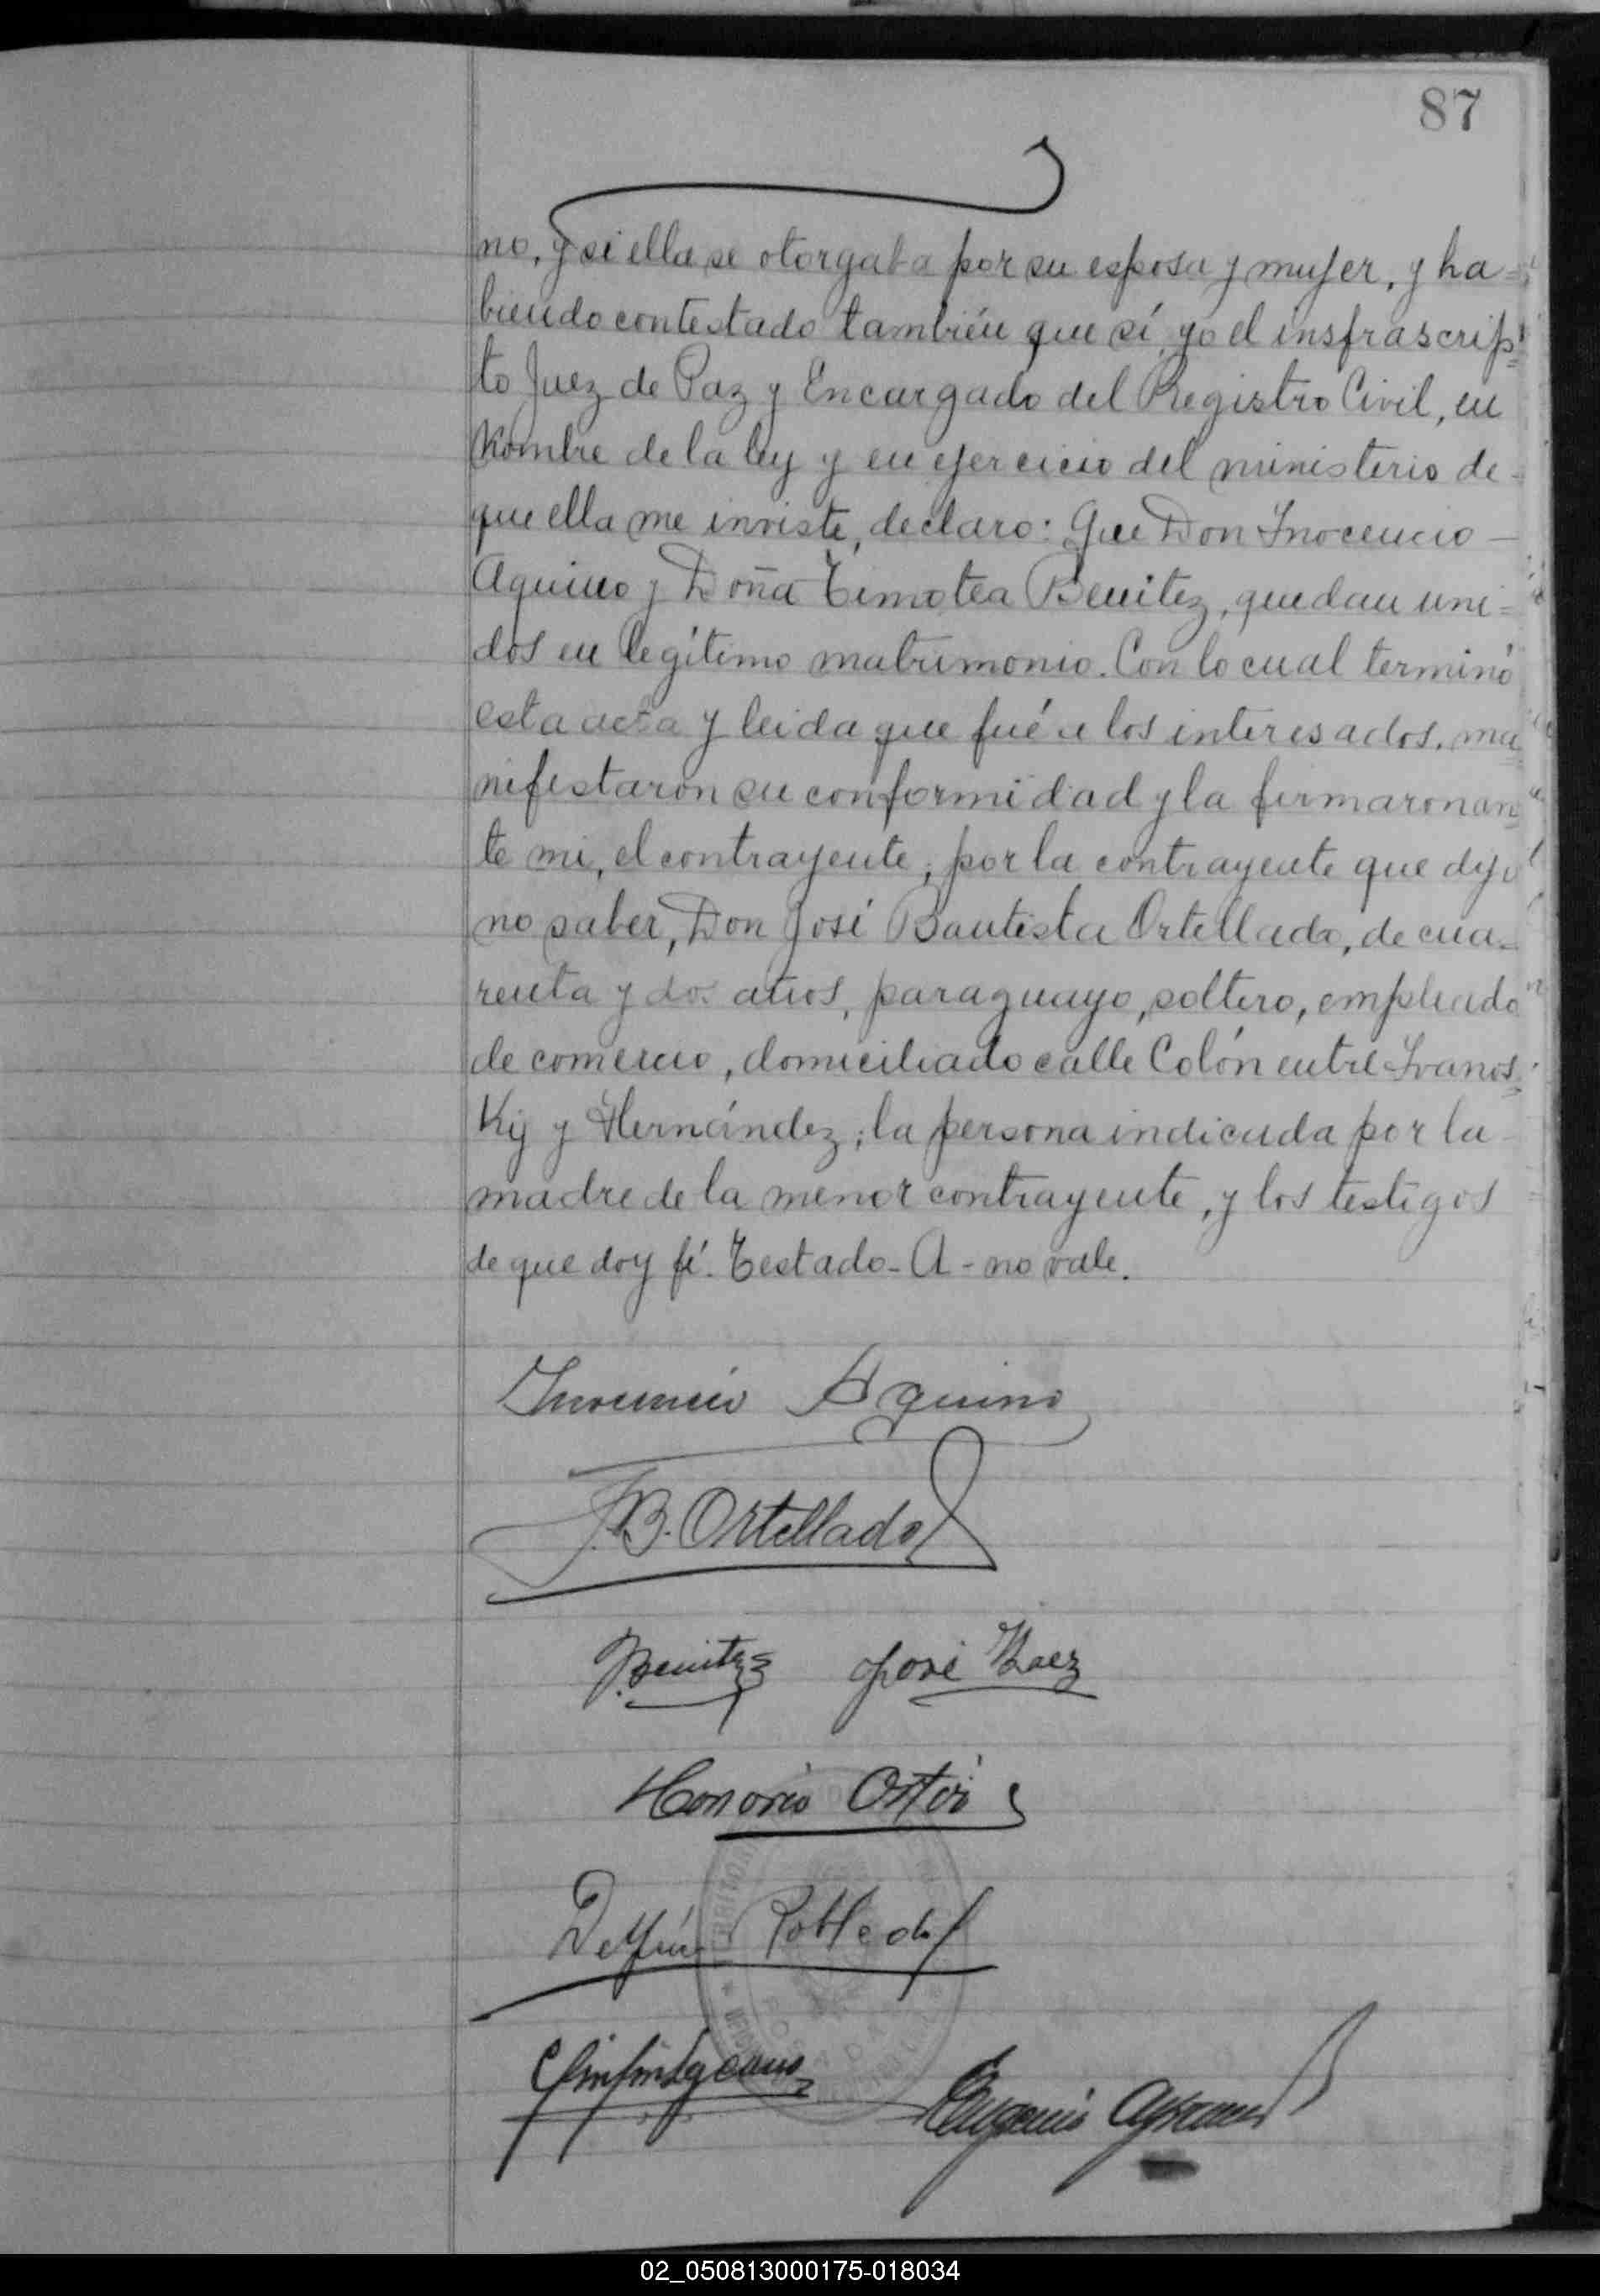 87
no, y si ella se otorgaba por su esposa y mujer, y ha=
biendo contestado también que sí, yo el insfrascrip=
to Juez de Paz y Encargado del Registro Civil, en
nombre de la ley y en ejercicio del ministerio de-
que ella me inviste, declaro: Que Don Inocencio —
Aquino y Doña Timotea Benitez, quedan uni=
dos en legítimo matrimonio. Con lo cual terminó
esta acta y leida que fué a los interesados, ma=
nifestaron su conformidad y la firmaron an=
te mi, el contrayente; por la contrayente que dijo
no saber, Don José Bautista Ortellado, de cua=
renta y dos años, paraguayo, soltero, empleado
de comercio, domiciliado calle Colón entre Ivanos=
Ky y Hernández; la persona indicada por la-
madre de la menor contrayente, y los testigos
de que doy fé. Testado- A - no vale.
Inocencio Aquino
J.B. Ortellado
Benitez José Baez
Honorio
Delfín Robledo
Eugenio
02_050813000175-018034